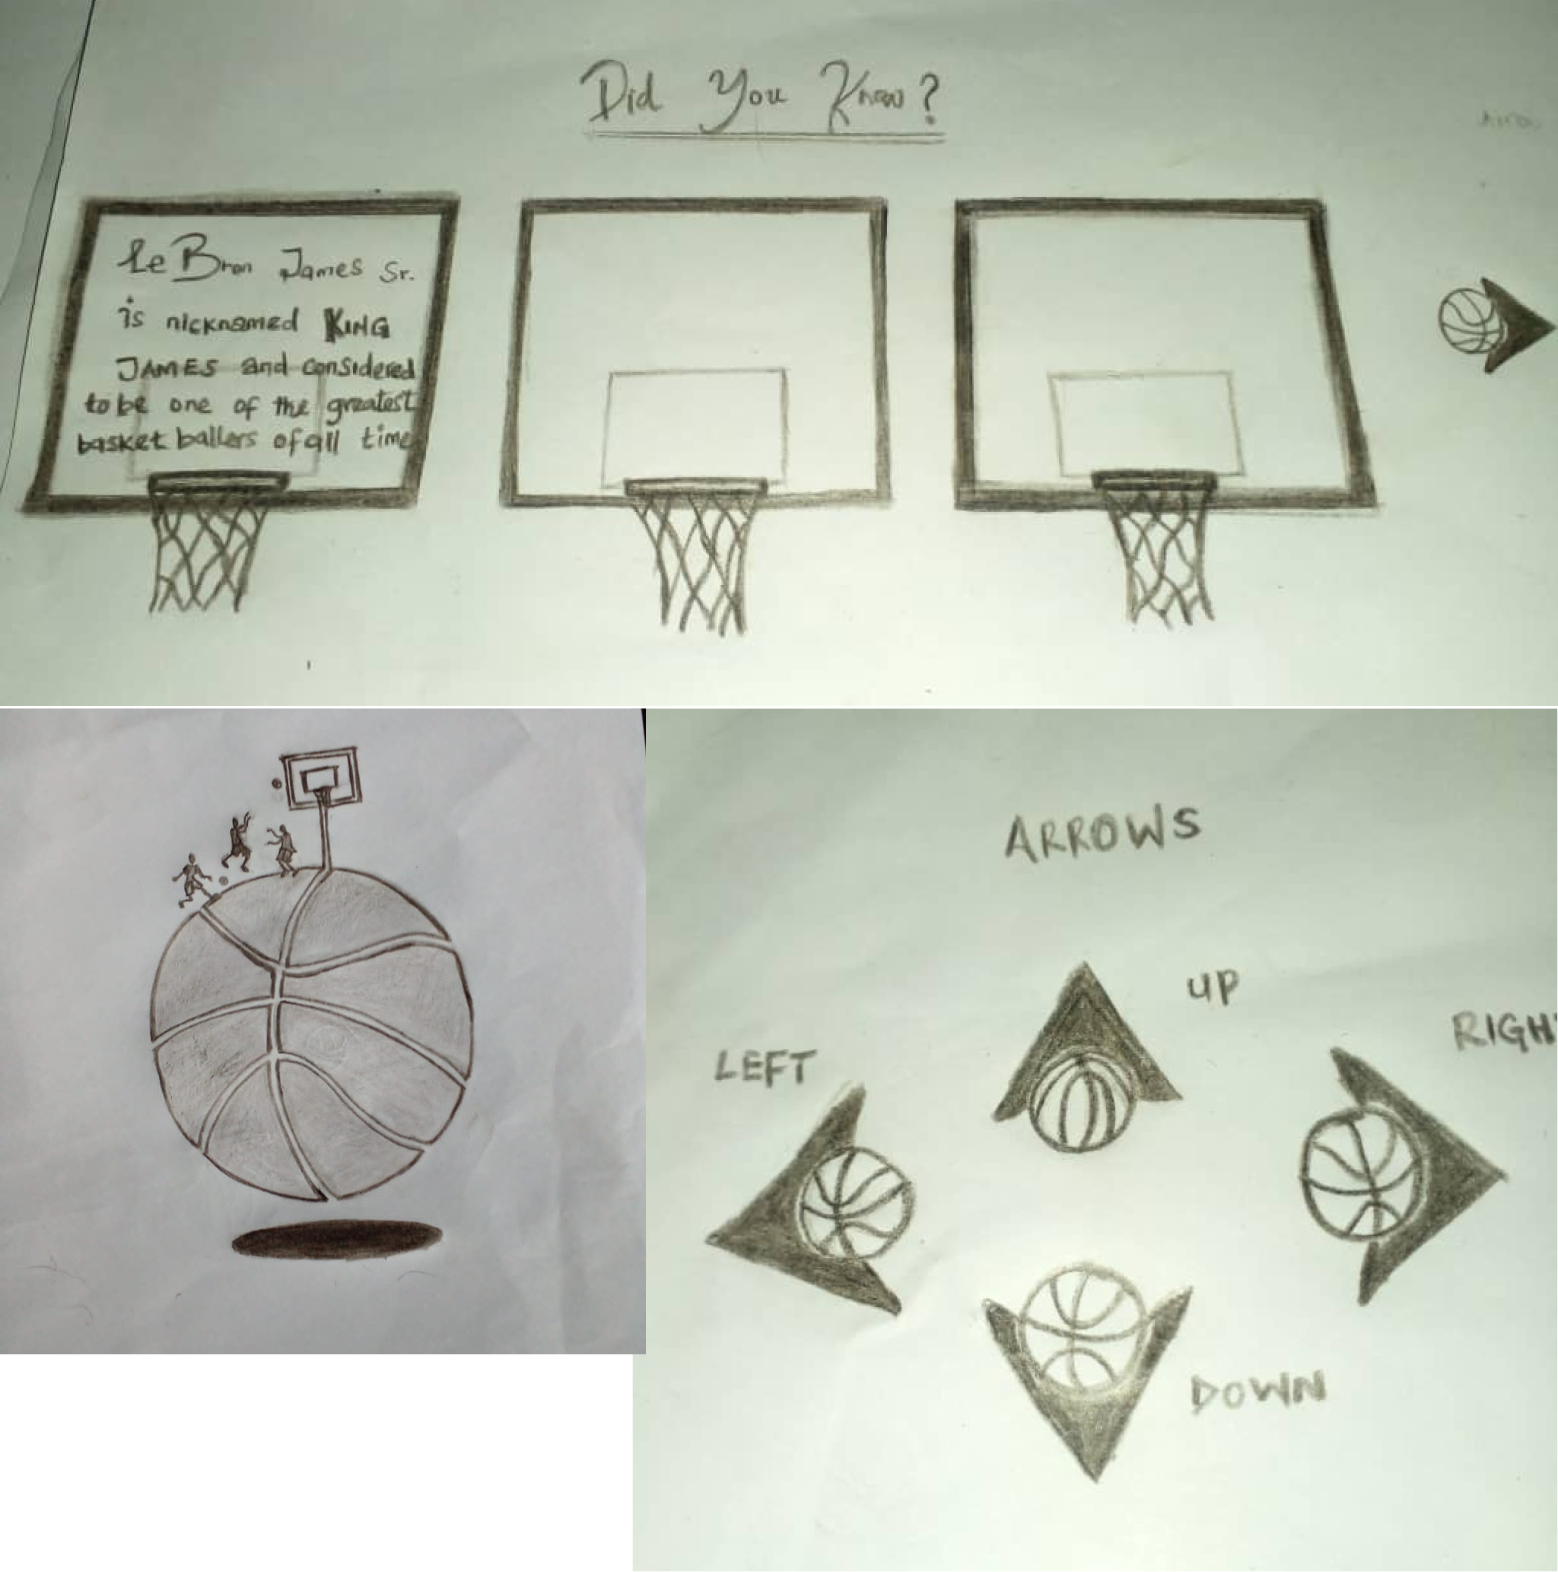 Did You Know?
LeBron James Sr.
is nicknamed KING
JAMES and considered
to be one of the greatest
basket ballers of all time
ARROWS
UP
RIGH
LEFT
DOWN